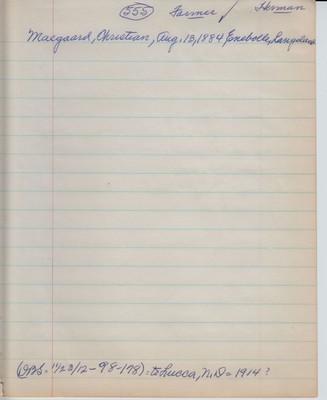 555 Farmer Herman
Maegaard, Christian, Aug. 13, 1884 Enebolle, Langeland
(DBS = 11/23/12 - 98 - 178) : to Lucca, N.D = 1914 ?